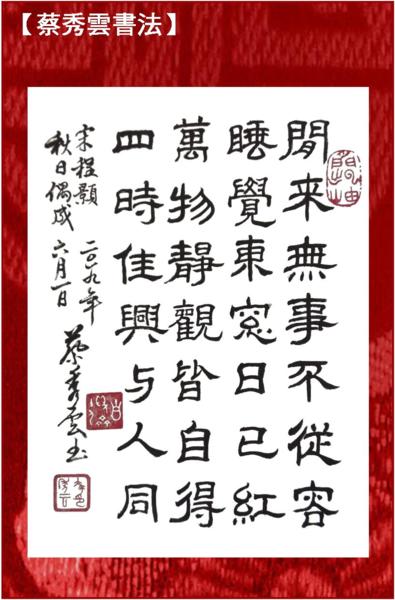 【蔡秀雲書法】
閒来無事不從容
睡覺東窓日已紅
萬物靜觀皆自得
四時佳興与人同
宋程顥
秋日偶成
二〇一九年
六月一日
蔡秀雲书